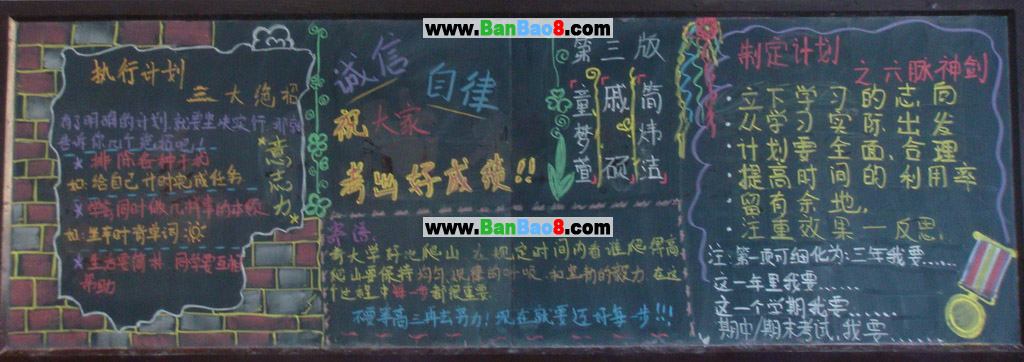 www.BanBao8.com
执行计划
三大绝招
有了明确的计划,就要坚决实行,那就
告诉你几个绝招吧!
*排除各种干扰
如:给自己计时完成任务
*学会同时做几件事的本领
如:坐车时背单词
*生活要简朴,同学要互相
帮助
意志力
诚信
自律
祝大家
考出好成绩!!
第三版
童梦萱
戚硕
简炜洁
www.BanBao8.com
寄语:
考大学好比爬山,在规定时间内看谁爬得高
爬山要保持均匀 的呼吸和坚韧的毅力,在这
个过程中每一步都很重要
不要等高三再去努力!现在就要迈好每一步!!!
制定计划
之六脉神剑
·立下学习的志向
·从学习实际出发
·计划要全面,合理
·提高时间的利用率
·留有余地,
·注重效果—反思.
注:第一项可细化为:三年我要……
这一年里我要……
这一个学期我要……
期中/期末考试,我要……